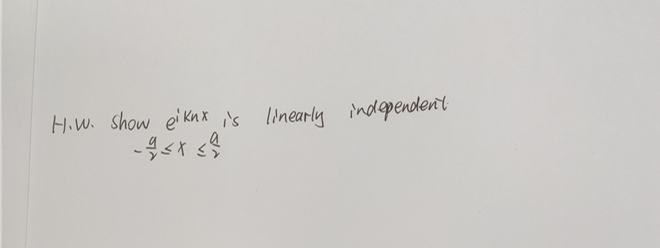 H.W. show e^{iknx} is linearly independent
-a/2 ≤ x ≤ a/2